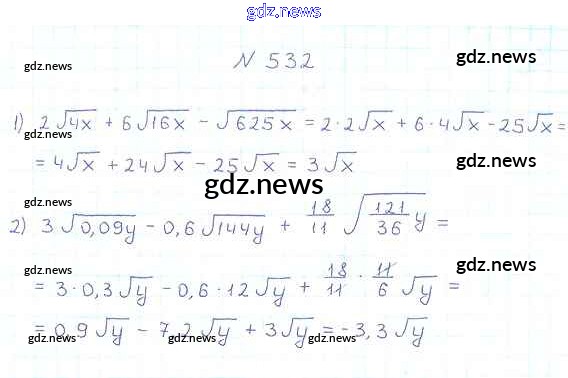 gdz.news
gdz.news N 532 gdz.news
1) 2√4x + 6√16x - √625x = 2·2√x + 6·4√x - 25√x =
= 4√x + 24√x - 25√x = 3√x gdz.news
gdz.news
gdz.news
2) 3√0,09y - 0,6√144y + 18/11 √(121/36)y =
gdz.news gdz.news
= 3·0,3√y - 0,6·12√y + 18/11 · 11/6 √y =
= 0,9√y - 7,2√y + 3√y = -3,3√y
gdz.news gdz.news gdz.news